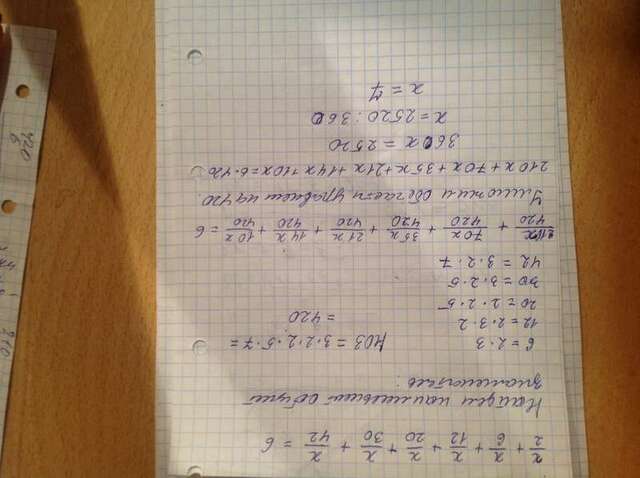 x/2 + x/6 + x/12 + x/20 + x/30 + x/42 = 6
Найдем наименьший общий
знаменатель:
6 = 2·3
12 = 2·3·2
20 = 2·2·5
30 = 3·2·5
42 = 3·2·7
НОЗ = 3·2·2·5·7 =
= 420
210x/420 + 70x/420 + 35x/420 + 21x/420 + 14x/420 + 10x/420 = 6
Умножим обе части уравнен на 420.
210x+70x+35x+21x+14x+10x=6·420
360x = 2520
x = 2520 : 360
x = 7
420
6